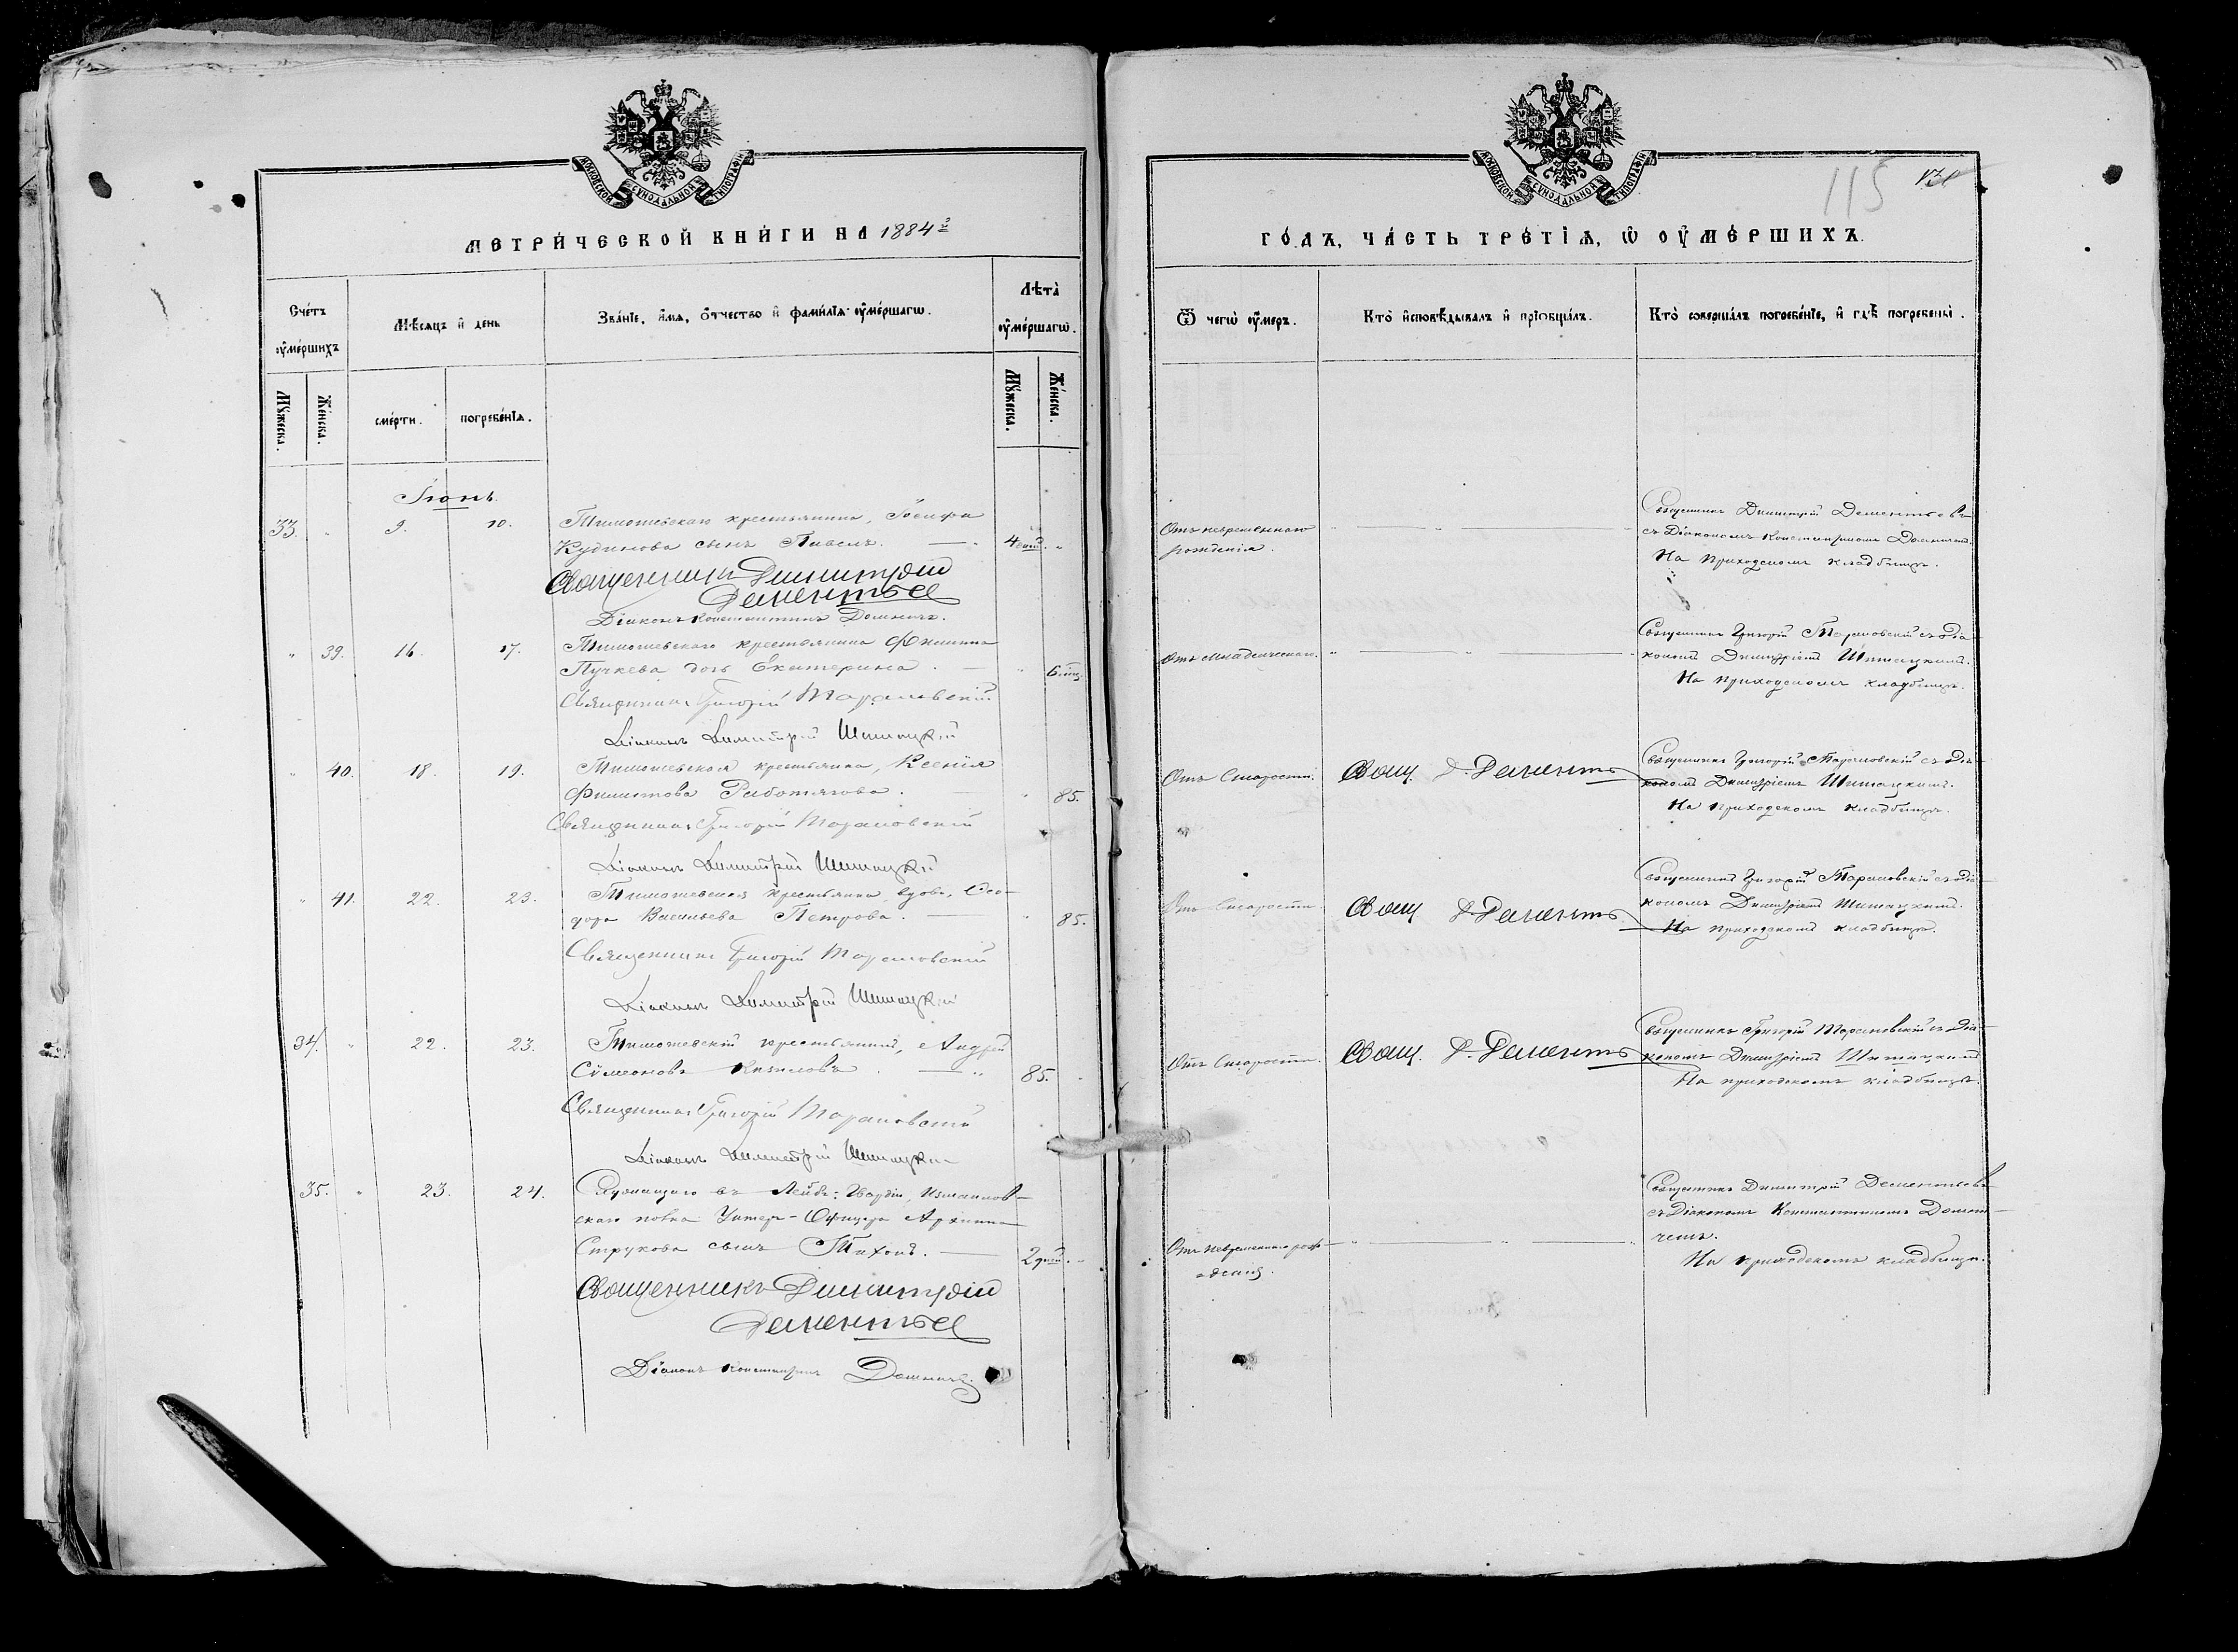 МОСКОВСКОЙ СУНОДАЛЬНОЙ ТИПОГРАФІИ
МЕТРИ́ЧЕСКОЙ КНИ́ГИ НА 1884 г
Сче́тъ ᲂу҆ме́ршихъ
Мѣ́сяцъ и҆ день
Зва́нїе, и҆́мѧ, ѻ҆́тчество и҆ фами́лїѧ ᲂу҆ме́ршагѡ.
Лѣта̀ ᲂу҆ме́ршагѡ.
Мꙋ́жеска.
Же́нска.
сме́рти.
погребе́нїѧ.
Мꙋ́жеска.
Же́нска.
Іюнь.
33. " 9. 10. Тимошевскаго крестьянина, Іосифа
Кудинова сынъ Павелъ. — 4 "
Священникъ Димитрій
Дементьев
Діаконъ Константинъ Домничъ.
" 39. 16. 17. Тимошевскаго крестьянина Филиппа
Пучкева дочь Екатерина. — " 6
Священникъ Григорій
Діаконъ Димитрій Шишацкій
" 40. 18. 19. Тимошевская крестьянка, Ксенія
Филиппова Работягова. — " 85.
Священникъ Григорій
Діаконъ Димитрій Шишацкій
" 41. 22. 23. Тимошевская крестьянка, вдова, Ѳео-
дора Васильева Петрова. " 85.
Священникъ Григорій
Діаконъ Димитрій Шишацкій
34. " 22. 23. Тимошевскій крестьянинъ, Андрей
Сѵмеоновъ — 85.
Священникъ Григорій
Діаконъ Димитрій Шишацкій
35. " 23. 24. Служащаго въ Лейбъ-Гвардіи, Измайлов-
скаго полка Унтеръ-Офицера Архиппа
Струкова сынъ Тихонъ. — 2 дней. "
Священникъ Димитрій
Дементьев
Діаконъ Константинъ Домничъ.
МОСКОВСКОЙ СУНОДАЛЬНОЙ ТИПОГРАФІИ
115
ГО́ДЪ, ЧА́СТЬ ТРЕ́ТЇѦ, Ѡ҆ ОУ҆МЕ́РШИХЪ.
Ѿ чегѡ̀ ᲂу҆́меръ.
Кто̀ и҆сповѣ́дывалъ и҆ прїѡбща́лъ.
Кто̀ соверша́лъ погребе́нїе, и҆ гдѣ̀ погребены̀.
Отъ невременнаго
рожденія.
Священникъ Димитрій Дементьевъ
съ Діакономъ Константиномъ Домничемъ.
На приходскомъ кладбищѣ.
Отъ младенческаго.
Священникъ Григорій съ Діа-
кономъ Димитріемъ Шишацкимъ.
На приходскомъ кладбищѣ.
Отъ Старости.
Свящ. Д. Дементьев
Священникъ Григорій съ Діа-
кономъ Димитріемъ Шишацкимъ.
На приходскомъ кладбищѣ.
Отъ Старости.
Свящ Д. Дементьев
Священникъ Григорій съ Діа-
кономъ Димитріемъ Шишацкимъ.
На приходскомъ кладбищѣ.
Отъ Старости.
Свящ. Д. Дементьев
Священникъ Григорій съ Діа-
кономъ Димитріемъ Шишацкимъ
На приходскомъ кладбищѣ.
Отъ невременнаго рож-
денія.
Священникъ Димитрій Дементьевъ
съ Діакономъ Константиномъ Домни-
чемъ.
На приходскомъ кладбищѣ.